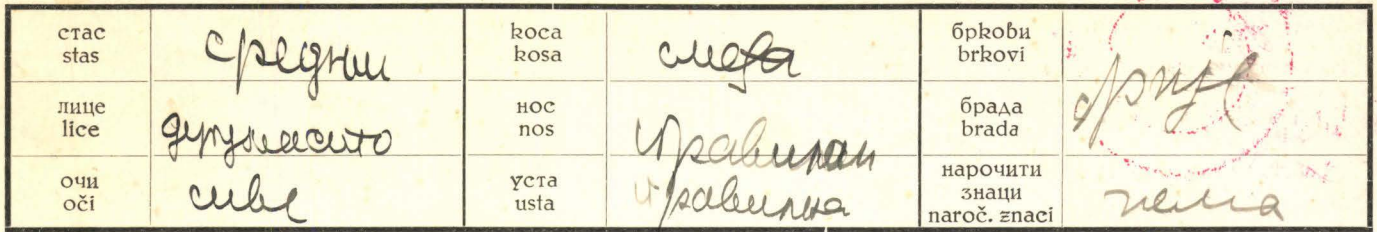 стас
stas
средњи
коса
kosa
смеђа
бркови
brkovi
брије
лице
lice
дугуљасто
нос
nos
правилан
брада
brada
очи
oči
сиве
уста
usta
правилна
нарочити
знаци
naroč. znaci
нема